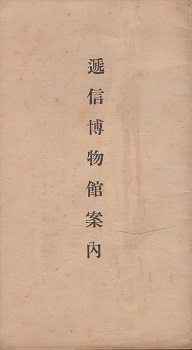 遞信博物館案內